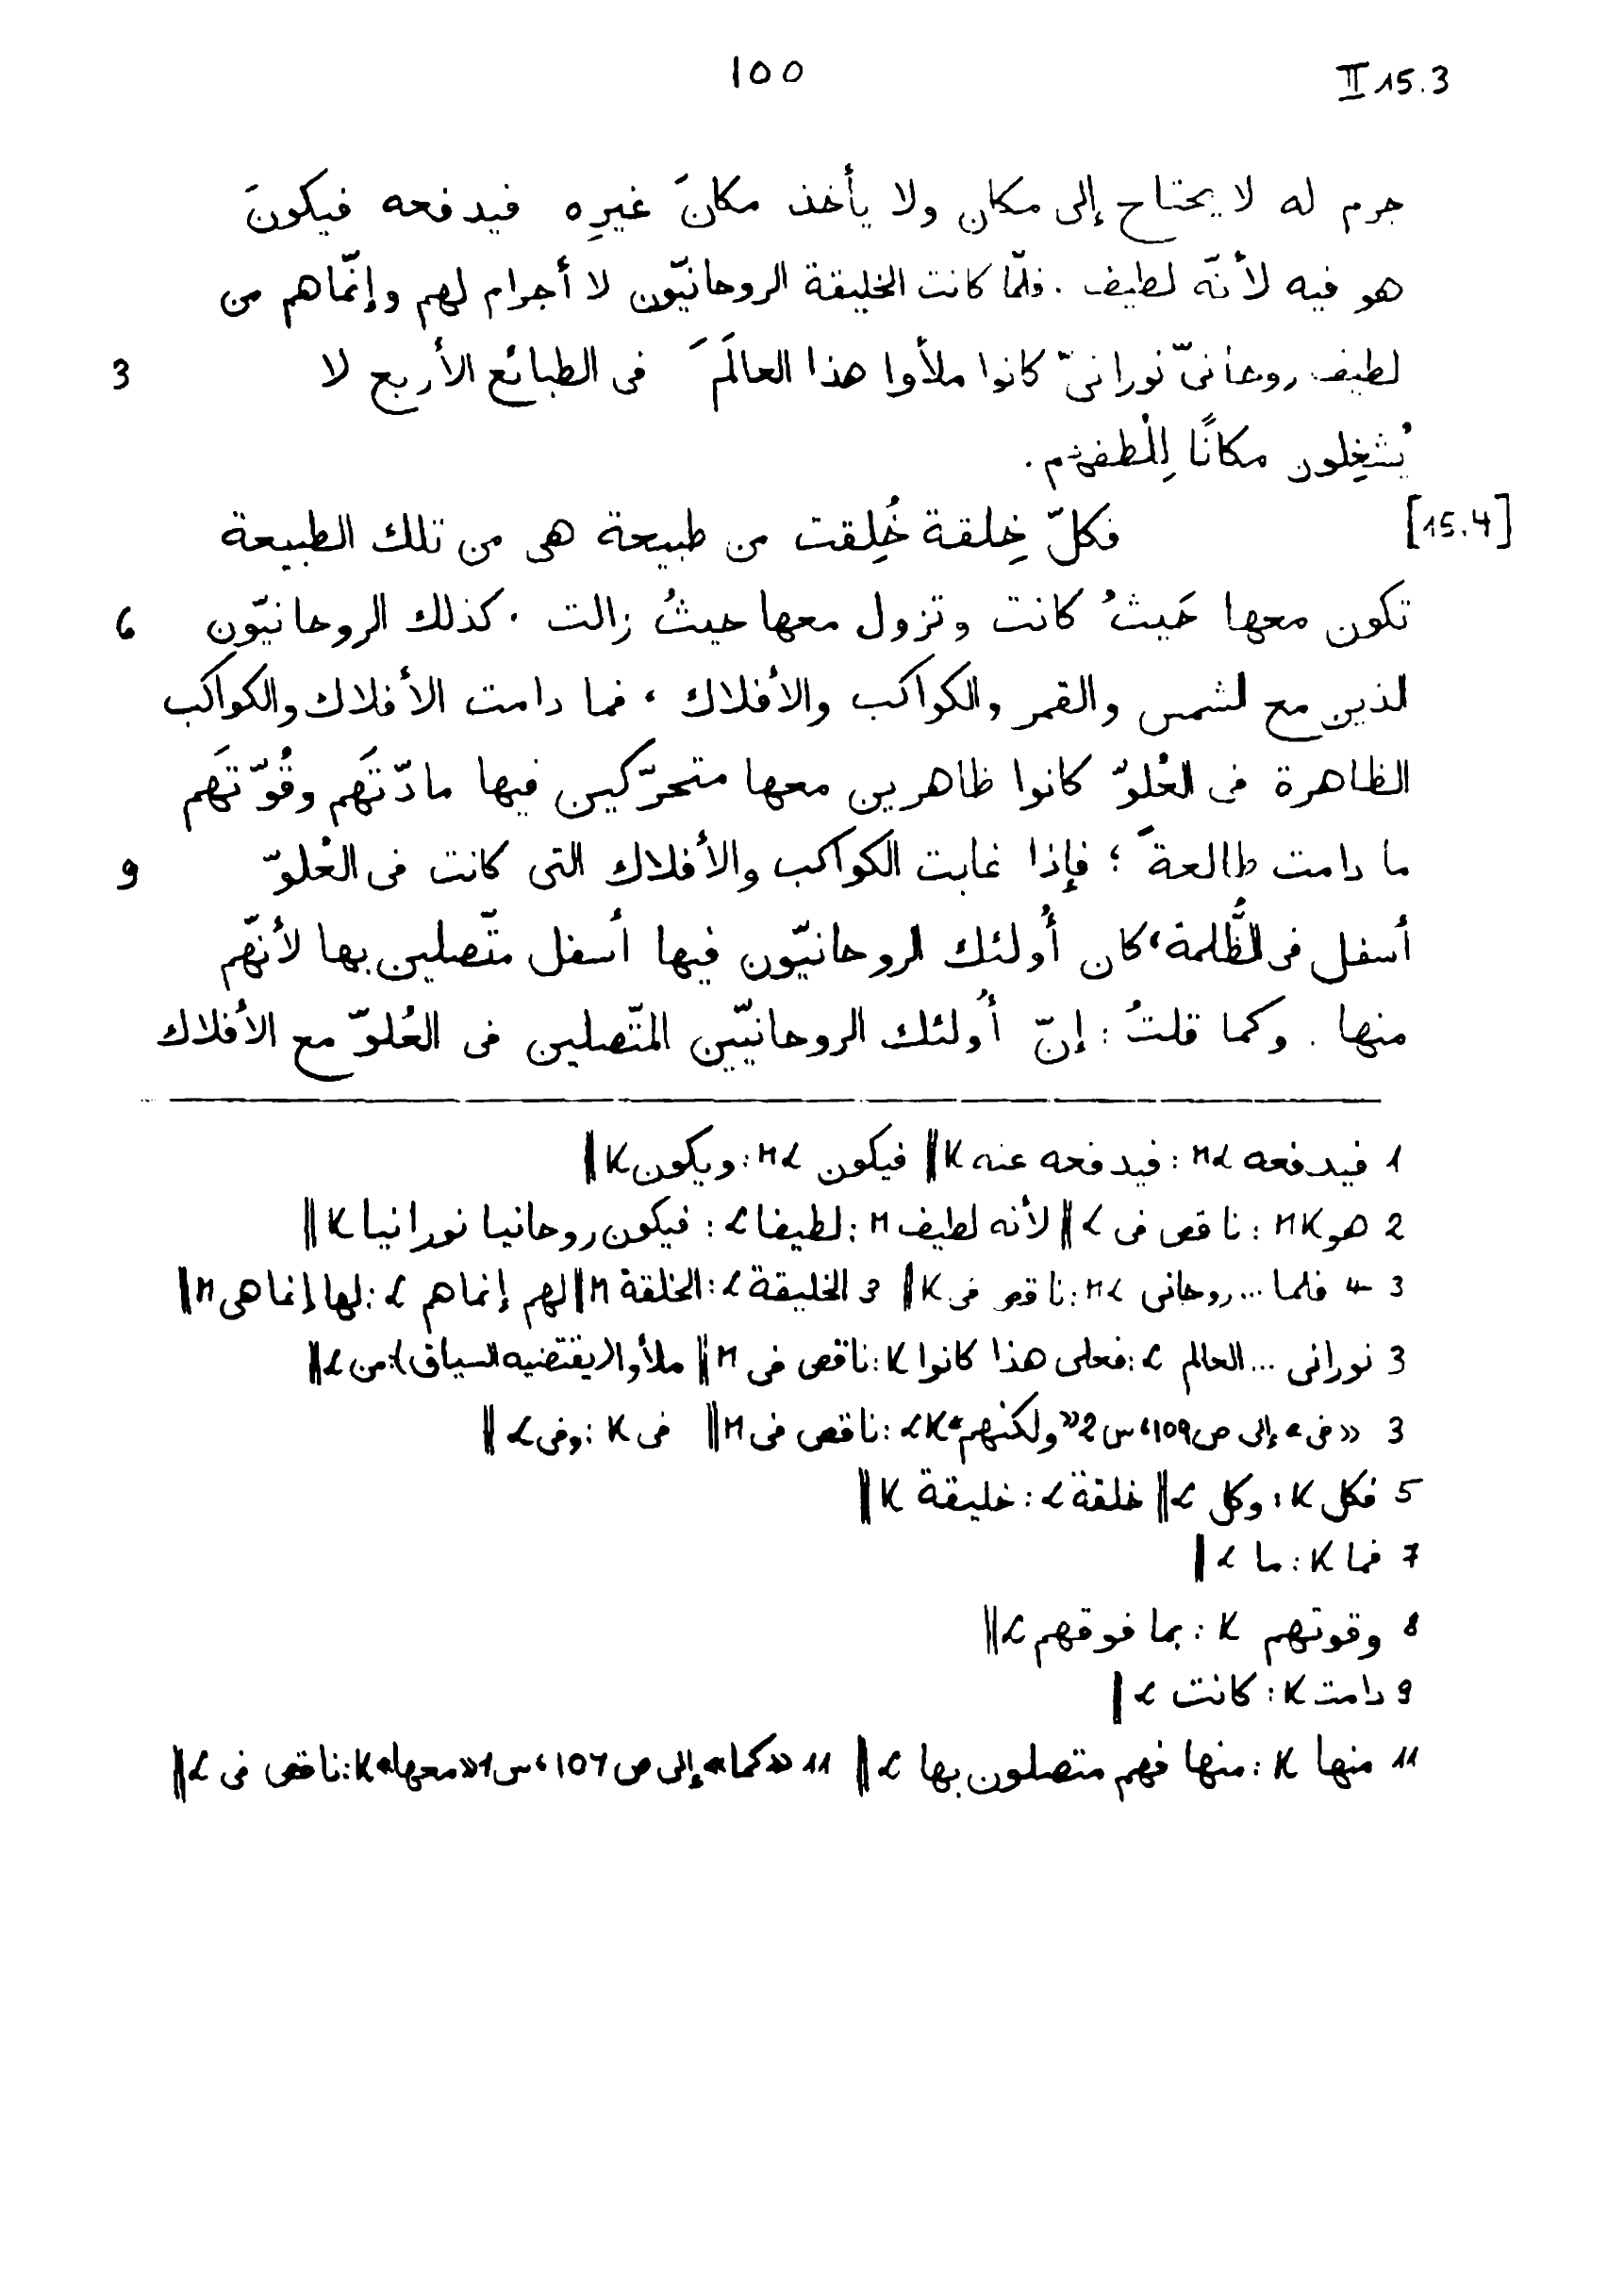 100 II 15.3
جرم له لا يحتاج إلى مكان ولا يأخذ مكانَ غيرِه فيدفعه فيكونَ
هو فيه لأنّه لطيف . فلمّا كانت الخليقة الروحانيّون لا أجرام لهم وإنّما هم من
لطيف روحانىّ نورانىّ كانوا ملأوا هذا العالَمَ فى الطبائع الأربع لا 3
يُشغِلون مكانًا لِلُطفهم .
[15.4] فكلّ خِلقة خُلِقت من طبيعة هى من تلك الطبيعة
تكون معها حَيثُ كانت وتزول معها حيثُ زالت . كذلك الروحانيّون 6
الذين مع الشمس والقمر والكواكب والأفلاك ، فما دامت الأفلاك والكواكب
الظاهرة فى العُلوّ كانوا ظاهرين معها متحرّكين فيها مادّتَهم وقُوّتَهم
ما دامت طالعةً ؛ فإذا غابت الكواكب والأفلاك التى كانت فى العُلوّ 9
أسفل فى الظُّلمة ، كان أُولئك الروحانيّون فيها أسفل متّصلين بها لأنّهم
منها . وكما قلتُ : إنّ أُولئك الروحانيّين المتّصلين فى العُلوّ مع الأفلاك
1 فيدفعه ML : فيدفعه عنه K || فيكون ML : ويكون K ||
2 هو MK : ناقص فى L || لأنه لطيف M : لطيفا L : فيكون روحانيا نورانيا K ||
3 - 4 فلما ... روحانى ML : ناقص فى K || 3 الخليقة L : الخلقة M || لهم إنما هم L : لها إنما هى M ||
3 نورانى ... العالم L : فعلى هذا كانوا K : ناقص فى M || ملأوا (يقتضيه السياق) : من L ||
3 «فى» إلى ص 109 ، س 2 «ولكنهم» LK : ناقص فى M || فى K : وفى L ||
5 فكل K : وكل L || خلقة L : خليقة K ||
7 فما K : ما L ||
8 وقوتهم K : بما فوقهم L ||
9 دامت K : كانت L ||
11 منها K : منها فهم متصلون بها L || 11 «كما» إلى ص 107 ، س 1 «معها» K : ناقص فى L ||